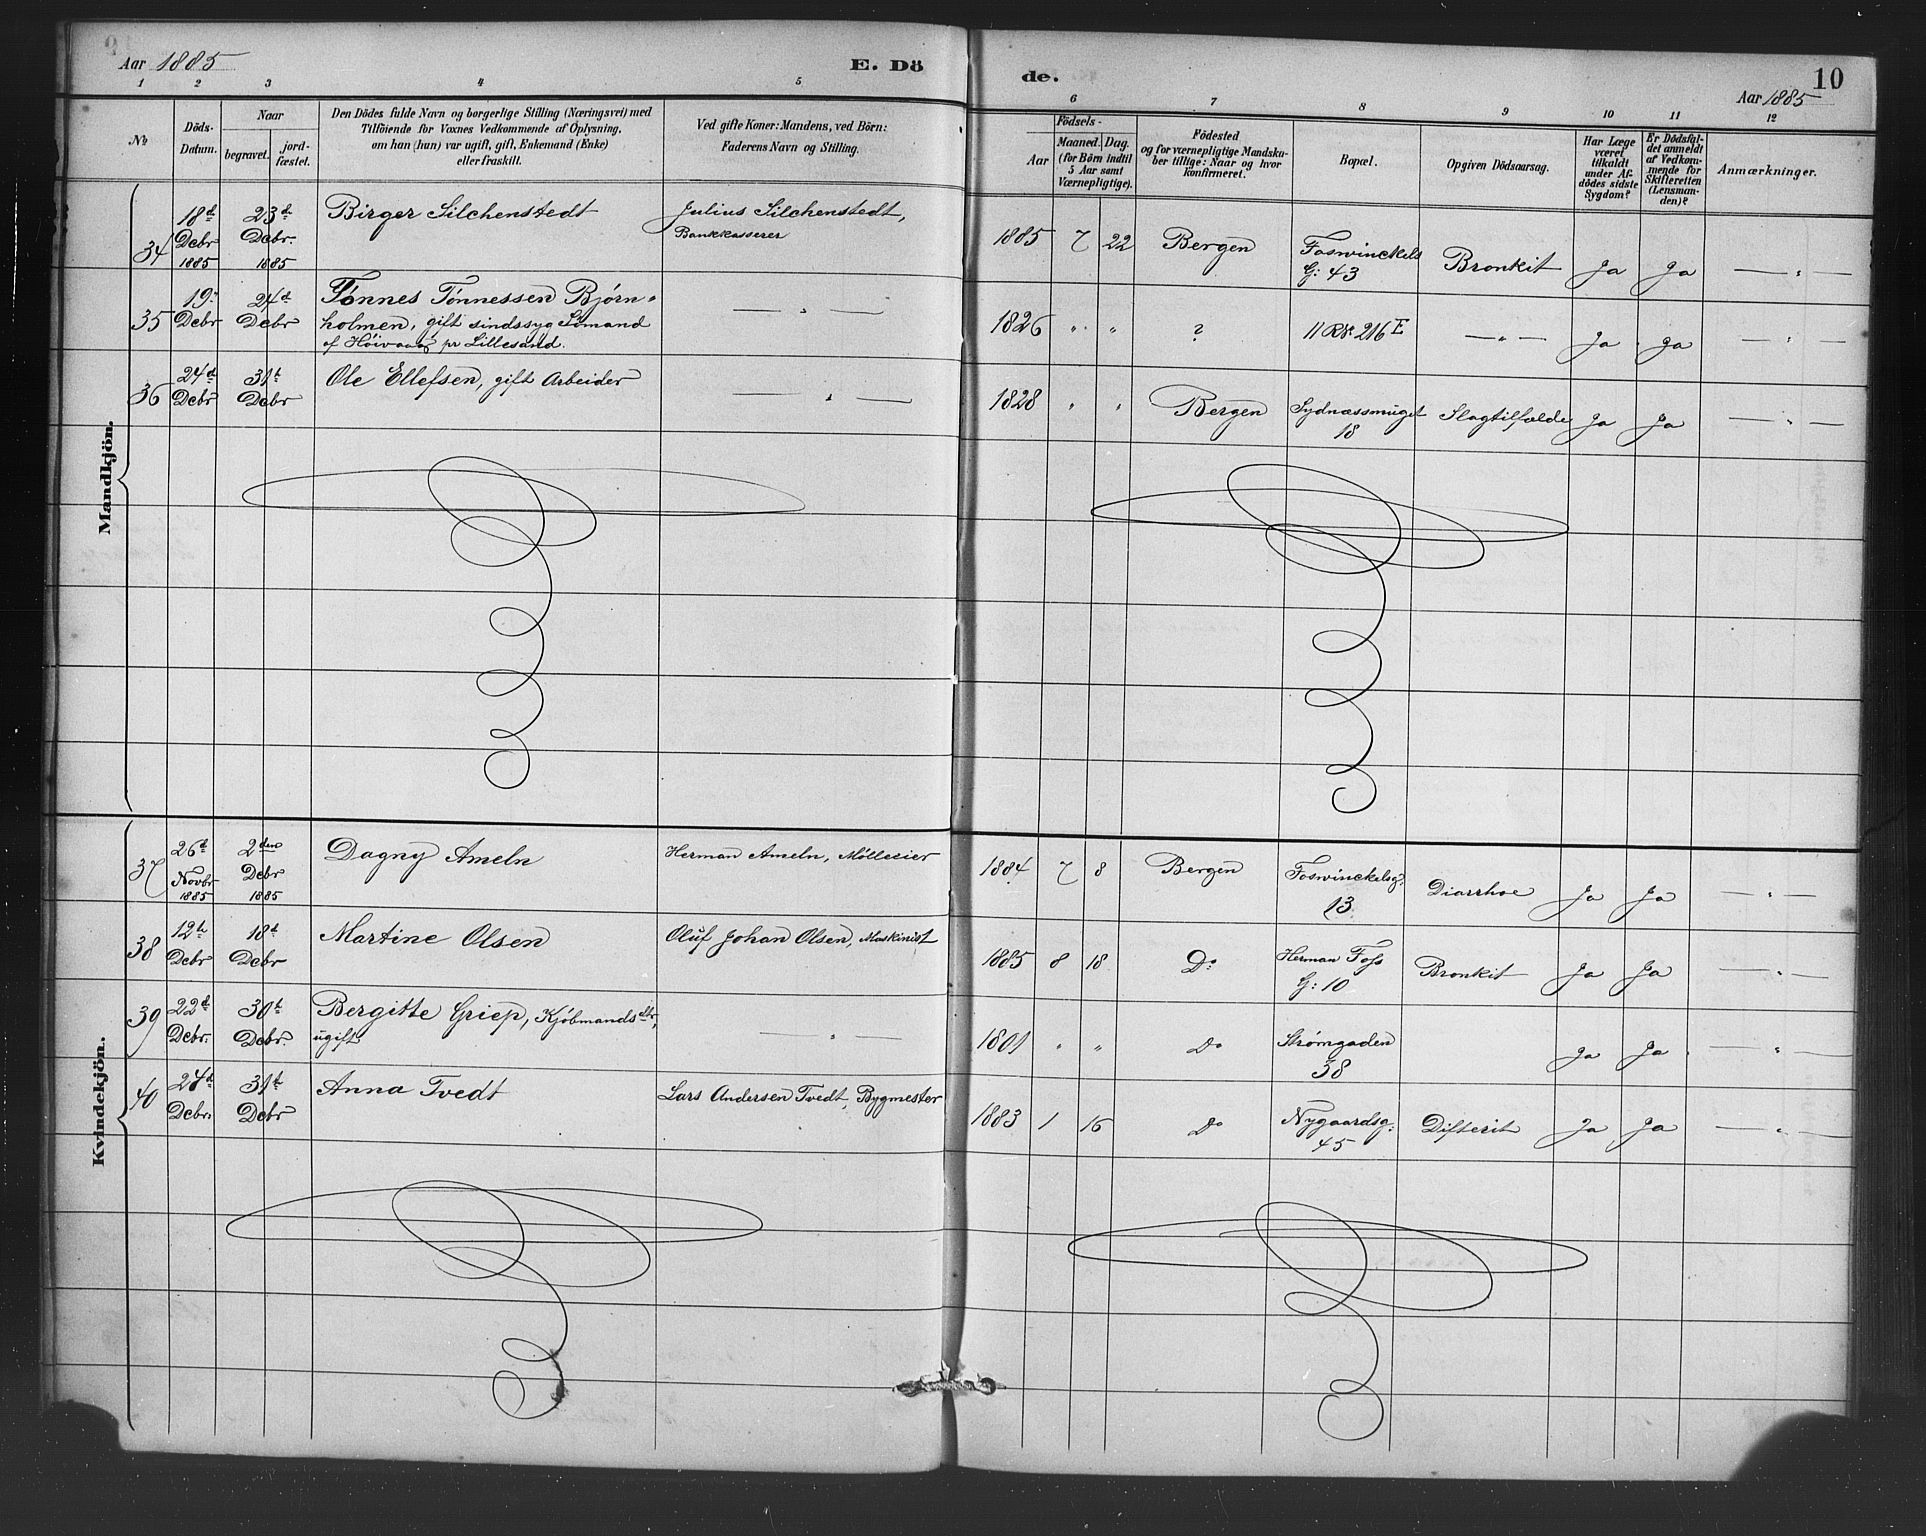 Aar 1885
E. Dö
de.
10
Aar 1885
1 2 3 4 5 6 7 8 9 10 11 12
No
Döds-
Datum.
Naar
begravet.
jord-
fæstet.
Den Dödes fulde Navn og borgerlige Stilling (Næringsvei) med
Tilföiende for Voxnes Vedkommende af Oplysning,
om han (hun) var ugift, gift, Enkemand (Enke)
eller fraskilt.
Ved gifte Koner: Mandens, ved Börn:
Faderens Navn og Stilling.
Födsels-
Aar
Maaned. Dag.
(for Börn indtil
5 Aar samt
Værnepligtige).
Födested
og for værnepligtige Mandska-
ber tillige: Naar og hvor
konfirmeret.
Bopæl.
Opgiven Dödsaarsag.
Har Læge
været
tilkaldt
under Af-
dödes sidste
Sygdom?
Er Dödsfal-
det anmeldt
af Vedkom-
mende for
Skifteretten
(Lensman-
den)?
Anmærkninger.
Mandkjön.
34
18d Debr 1885
23d Debr. 1885
Birger Silchenstedt
Julius Silchenstedt,
Bankkasserer
1885 7 22 Bergen
Foswinckels
G: 43
Bronkit Ja Ja — " —
35
19' Debr
24d Debr
Tönnes Tönnessen Bjørn-
holmen, gift sindssyg Sömand
af Höivaag pr Lillesand.
— " —
1826 " " ? 11 R No 216 E — " — Ja Ja — " —
36
24d Debr
31t Debr
Ole Ellefsen, gift Arbeider
— " —
1828 " " Bergen
Sydnæssmuget
18
Slagtilfælde Ja Ja — " —
Kvindekjön.
37
26d Novbr 1885
2den Debr 1885
Dagny Ameln
Herman Ameln, Mölleeier
1884 7 8 Bergen
Foswinckelsg:
13
Diarrhoe Ja Ja — " —
38
12te Debr
18d Debr
Martine Olsen
Oluf Johan Olsen, Maskinist
1885 8 18 Do:
Herman Foss
G: 10
Bronkit Ja Ja — " —
39
22d Debr.
30t Debr.
Bergitte Griep, Kjöbmandsdtr,
ugift
— " —
1801 " " Do
Strømgaden
38
Ja Ja — " —
40
27d Debr.
31t Debr
Anna Tvedt
Lars Andersen Tvedt, Bygmester
1883 1 16 Do
Nygaardsg:
45
Difterit Ja Ja — " —